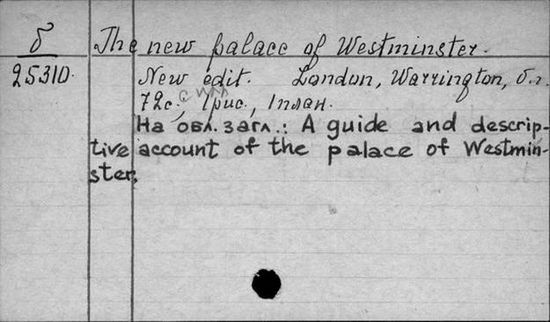 б
25310.
The new palace of Westminster.
New edit. London, Warrington, б.г.
72с. с илл., 1рис., 1план.
На обл. загл.: A guide and descrip-
tive account of the palace of Westmin-
ster.